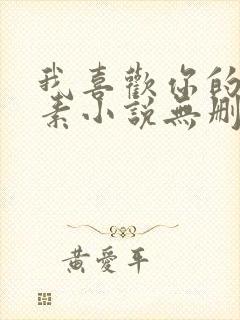 我喜歡你的
素小說無刪
黃愛平